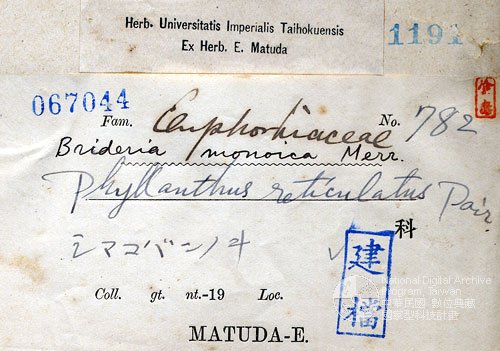 Herb. Universitatis Imperialis Taihokuensis
Ex Herb. E. Matuda
1191
067044
Fam. Euphorbiaceae No. 782
Brideria monoica Merr.
Phyllanthus reticulatus Poir.
シマコバンノキ
科
建檔
Coll. gt. nt.-19 Loc.
MATUDA-E.
National Digital Archive
Program, Taiwan
中華民國 數位典藏
國家型科技計畫